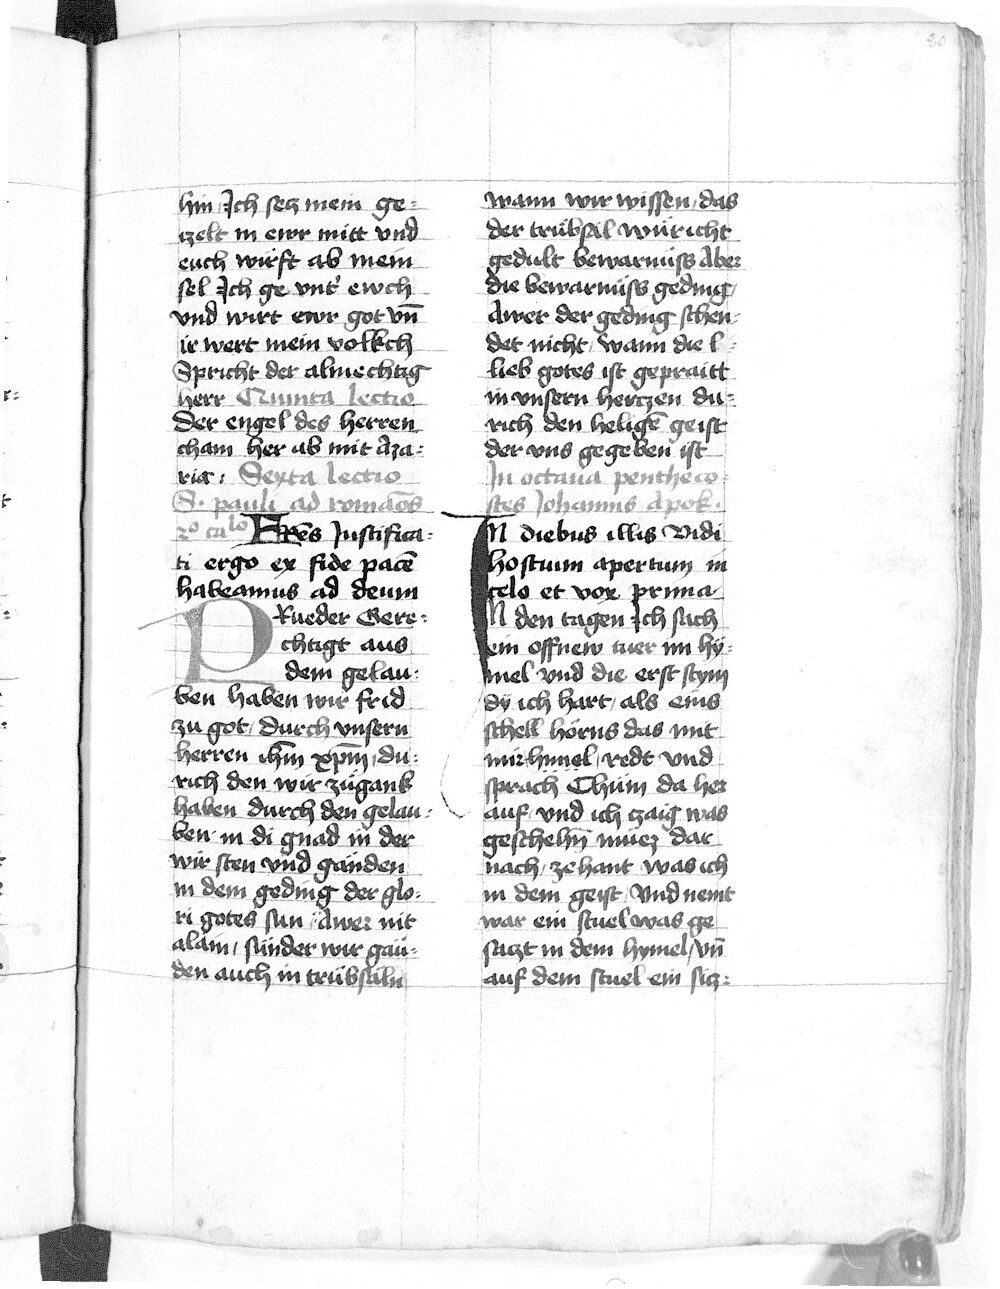 80
hin Ich secz mein ge⸗
zelt in ewr mitt vnd
euch wirft ab mein
sel Ich ge vnt' ewch
vnd wirt ewr got vn̄
ir wert mein volkch
Spricht der almechtig
herr Quinta lectio
Der engel des herren
cham her ab mit Aza⸗
ria: Sexta lectio
S. pauli ad romāos
Fr̄es Justifica⸗
ti ergo ex fide pacē
habeamus ad deum
PRueder Gere⸗
chtigt aus
dem gelau⸗
ben haben wir frid
zu got durch vnsern
herren ihm̄ xpm̄ du⸗
rich den wir zügank
haben durch den gelau⸗
ben in di gnad in der
wir sten vnd gäuden
in dem geding der glo⸗
ri gotes sun Awer nit
alain sünder wir gäu⸗
den auch in trübsäln
wann wir wissen das
der trübsäl würicht
gedult bewarnüss Aber
die bewarnüss geding
Awer der geding schen⸗
det nicht wann die l⸗
lieb gotes ist gepraitt
in vnsern hertzen du⸗
rich den heligē geist
der vns gegeben ist
In octaua pentheco⸗
stes Johannis Apok.
IN diebus illis Vidi
hostium apertum in
celo et vox prima
IN den tagen Ich sach
ein offnew tuer im hy⸗
mel vnd die erst stym
dy ich hart als eins
schell hörns das mit
mir himel redt vnd
sprach Chüm da her
auf vnd ich czaig was
geschehn̄ müez dar
nach zehant was ich
in dem geist Vnd nemt
war ein stuel was ge
saczt in dem hymel vn̄
auf dem stuel ein sicz⸗